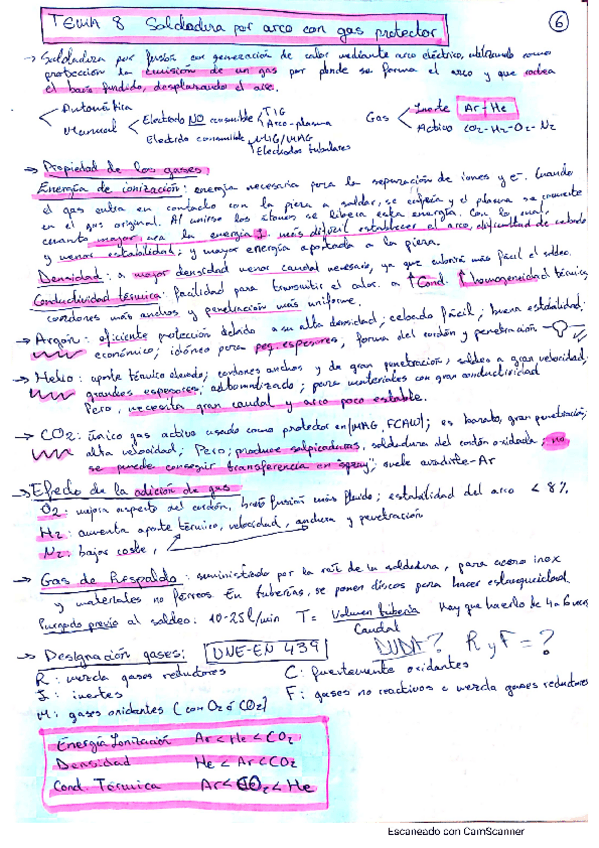 TEMA 8 Soldadura por arco con gas protector
6
→ Soldadura por fusión con generación de calor mediante arco eléctrico, utilizando como
protección la emisión de un gas por donde se forma el arco y que rodea
el baño fundido, desplazando el aire.
Automática
Manual
Electrodo NO consumible
TIG
Arco-plasma
Electrodo consumible
MIG/MAG
Electrodos tubulares
Gas
Inerte Ar-He
Activo CO2-H2-O2-N2
→ Propiedad de los gases:
Energía de ionización: energía necesaria para la separación de iones y e-. Cuando
el gas entra en contacto con la pieza a soldar, se enfría y el plasma se convierte
en el gas original. Al unirse los átomos se libera esta energía. Con lo cual
cuanto mayor sea la energía I. más difícil establecer el arco, dificultad de cebado
y menor estabilidad; y mayor energía aportada a la pieza.
Densidad: a mayor densidad menor caudal necesario, ya que cubrirá más fácil el soldeo.
Conductividad térmica: facilidad para transmitir el calor. a ↑Cond. ↑homogeneidad térmica,
cordones más anchos y penetración más uniforme.
→ Argón: eficiente protección debido a su alta densidad; cebado fácil; buena estabilidad;
económico; idóneo para peq. espesores, forma del cordón y penetración
→ Helio: aporte térmico elevado; cordones anchos y de gran penetración; soldeo a gran velocidad;
grandes espesores, automatizado; para materiales con gran conductividad
Pero, necesita gran caudal y arco poco estable.
→ CO2: único gas activo usado como protector en (MAG, FCAW); es barato, gran penetración;
alta velocidad; Pero; produce salpicaduras, soldadura del cordón oxidada; no
se puede conseguir transferencia en "spray"; suele Ar
→ Efecto de la adición de gas
O2: mejora aspecto del cordón, baño fusión más fluido; estabilidad del arco < 8%
H2: aumenta aporte térmico, velocidad, anchura y penetración
N2: bajar coste,
→ Gas de Respaldo: suministrado por la raíz de la soldadura, para acero inox
y materiales no férreos. En tuberías, se ponen discos para hacer estanqueidad.
Purgado previo al soldeo: 10-25 l/min T = Volumen tubería / Caudal Hay que hacerlo de 4 a 6 veces
DUDA? R y F = ?
→ Designación gases: UNE-EN 439
R: mezcla gases reductores
C: fuertemente oxidantes
I: inertes
F: gases no reactivos o mezcla gases reductores
M: gases oxidantes (con O2 ó CO2)
Energía Ionización Ar < He < CO2
Densidad He < Ar < CO2
Cond. Térmica Ar < CO2 < He
Escaneado con CamScanner